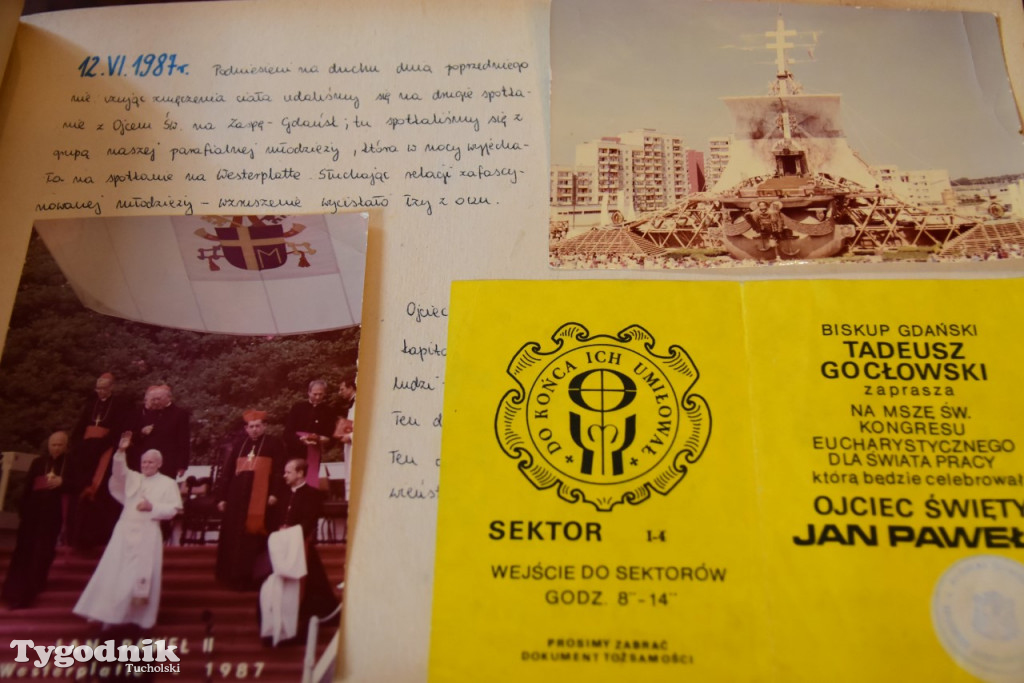 12.VI.1987r. Podniesieni na duchu dnia poprzedniego
nie czując zmęczenia ciała udaliśmy się na drugie spotka-
nie z Ojcem Św. na Zaspę - Gdańsk; tu spotkaliśmy się z
grupą naszej parafialnej młodzieży, która w nocy wyjecha-
ła na spotkanie na Westerplatte. Słuchając relacji zafascy-
nowanej młodzieży - wzruszenie wycisłało łzy z oczu.
Ojciec
kapita
ludzi
Ten d
Ten
DO KOŃCA ICH UMIŁOWAŁ
SEKTOR 1-4
WEJŚCIE DO SEKTORÓW
GODZ. 8°° - 14°°
PROSIMY ZABRAĆ
DOKUMENT TOŻSAMOŚCI
BISKUP GDAŃSKI
TADEUSZ
GOCŁOWSKI
zaprasza
NA MSZĘ ŚW.
KONGRESU
EUCHARYSTYCZNEGO
DLA ŚWIATA PRACY
którą będzie celebrował
OJCIEC ŚWIĘTY
JAN PAWEŁ
JAN PAWEŁ II
Westerplatte 1987
Tygodnik
Tucholski